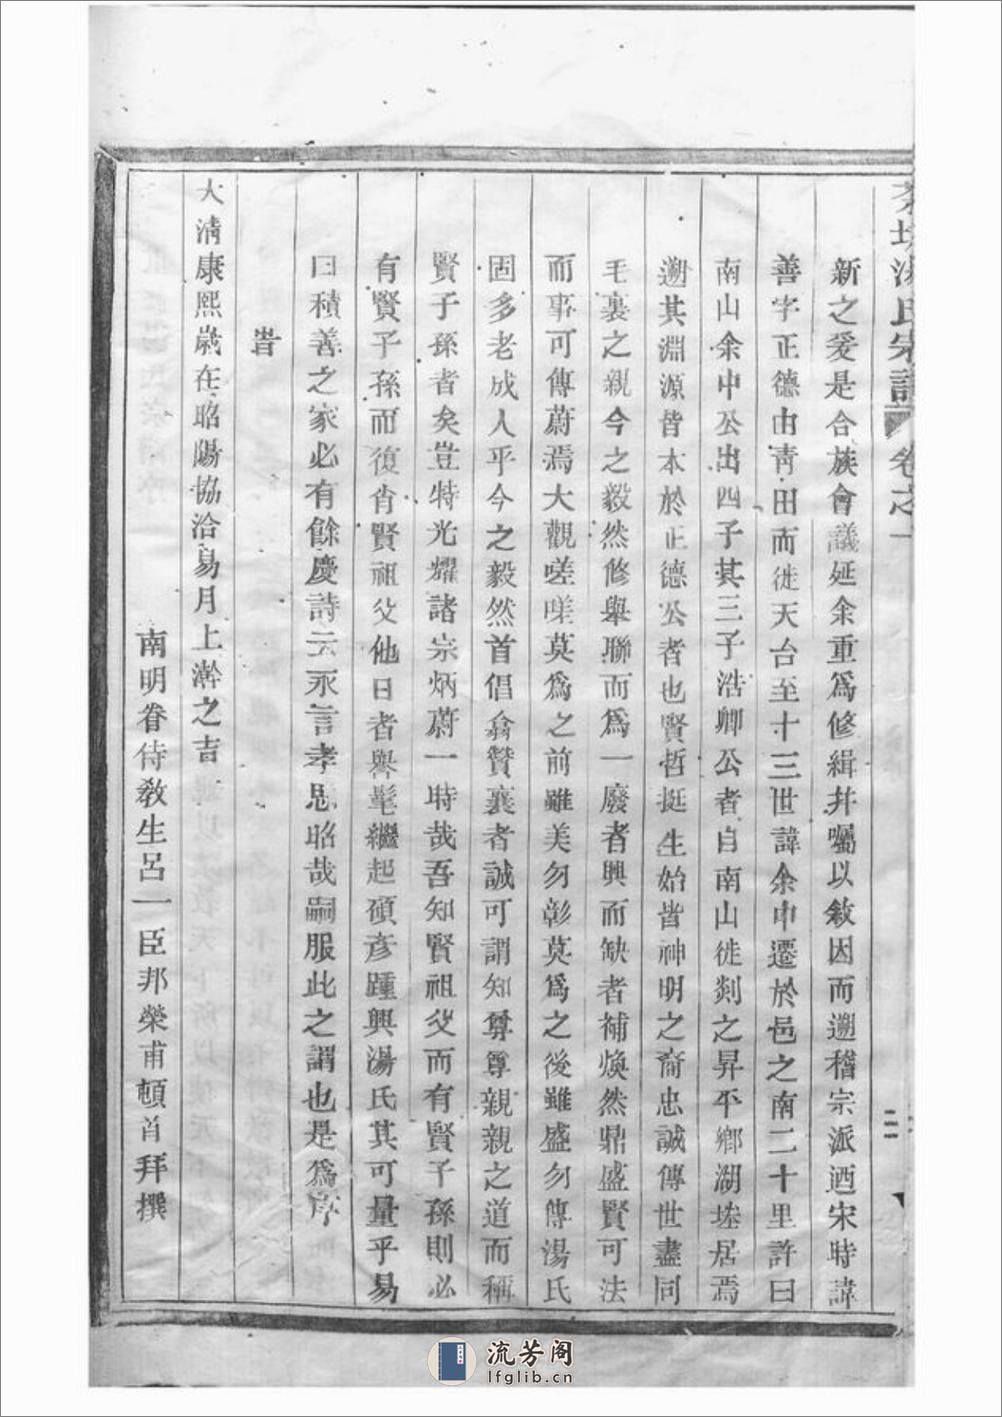 湯氏宗譜 卷之一
二
新之爰是合族會議延余重爲修緝幷囑以敘因而遡稽宗派迺宋時諱
善字正德由靑田而徙天台至十三世諱余中遷於邑之南二十里許曰
南山余中公出四子其三子浩卿公者自南山徙剡之昇平鄉湖塍居焉
遡其淵源皆本於正德公者也賢哲挺生始皆神明之裔忠誠傳世盡同
毛裏之親今之毅然修舉聯而爲一廢者興而缺者補煥然鼎盛賢可法
而事可傳蔚焉大觀嗟嗟莫爲之前雖美勿彰莫爲之後雖盛勿傳湯氏
固多老成人乎今之毅然首倡翕贊襄者誠可謂知尊尊親親之道而稱
賢子孫者矣豈特光耀諸宗炳蔚一時哉吾知賢祖父而有賢子孫則必
有賢子孫而復肖賢祖父他日者譽髦繼起碩彥踵興湯氏其可量乎易
曰積善之家必有餘慶詩云永言孝思昭哉嗣服此之謂也是爲序
旹
大淸康熙歲在昭陽協洽易月上澣之吉
南明眷侍敎生呂一臣邦榮甫頓首拜撰
流芳阁
lfglib.cn